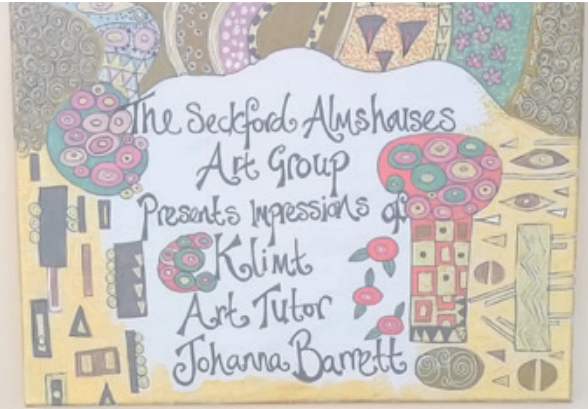 The Seckford Almshouses
Art Group
Presents Impressions of
Klimt
Art Tutor
Johanna Barrett